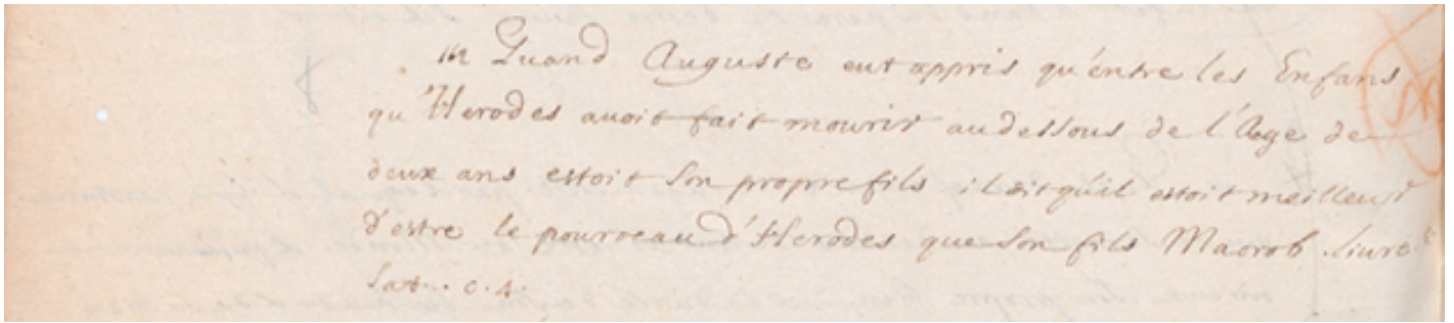 Quand Auguste eut appris qu'entre les Enfans
qu'Herodes avoit fait mourir au dessous de l'Aage de
deux ans estoit son propre fils il dit qu'il estoit meilleur
d'estre le pourceau d'Herodes que son fils Macrob. livre.
Sat. c. 4.